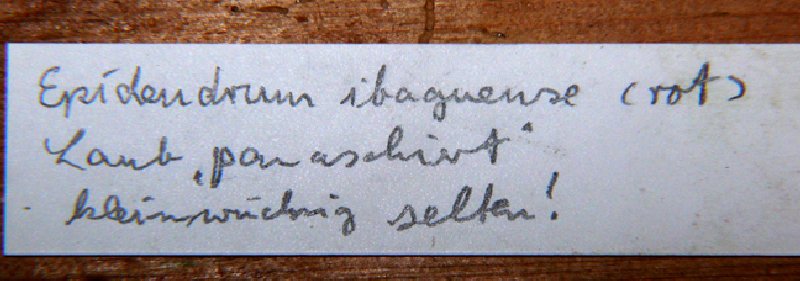 Epidendrum ibaguense (rot)
Laub „panaschiert“
kleinwüchsig selten!